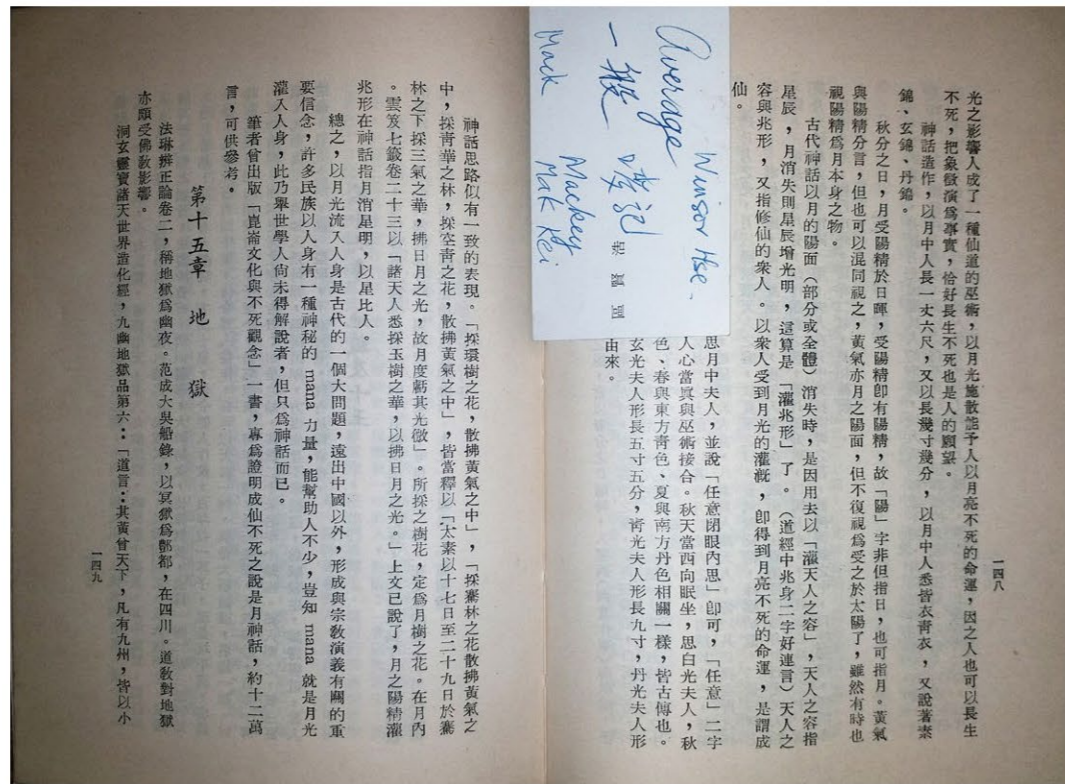 一四八
光之影響人成了一種仙道的巫術，以月光施散能予人以月亮不死的命運，因之人也可以長生
不死，把象徵演爲事實，恰好長生不死也是人的願望。
神話造作，以月中人長一丈六尺，又以長幾寸幾分，以月中人悉皆衣青衣，又說著素
錦、玄錦、丹錦。
秋分之日，月受陽精於日暉，受陽精卽有陽精，故「陽」字非但指日，也可指月。黃氣
與陽精分言，但也可以混同視之，黃氣亦月之陽面，但不復視爲受之於太陽了，雖然有時也
視陽精爲月本身之物。
古代神話以月的陽面（部分或全體）消失時，是因用去以「灌天人之容」，天人之容指
星辰，月消失則星辰增光明，這算是「灌兆形」了。（道經中兆身二字好連言）天人之
容與兆形，又指修仙的衆人。以衆人受到月光的灌漑，卽得到月亮不死的命運，是謂成
仙。
思月中夫人，並說「任意閉眼內思」卽可，「任意」二字
人心當眞與巫術接合。秋天當西向眠坐，思白光夫人，秋
色、春與東方青色、夏與南方丹色相關一樣，皆古傳也。
玄光夫人形長五寸五分，青光夫人形長九寸，丹光夫人形
由來。
Winsor Hse.
Average
一般
區賢浩
Mackey
Mak Kei
Mack
神話思路似有一致的表現。「採環樹之花，散拂黃氣之中」，「採騫林之花散拂黃氣之
中，採青華之林，採空青之花，散拂黃氣之中」，皆當釋以「太素以十七日至二十九日於騫
林之下採三氣之華，拂日月之光，故月度虧其光微」。所採之樹花，定爲月樹之花。在月內
。雲笈七籤卷二十三以「諸天人悉採玉樹之華，以拂日月之光。」上文已說了，月之陽精灌
兆形在神話指月消星明，以星比人。
總之，以月光流入人身是古代的一個大問題，遠出中國以外，形成與宗敎演義有關的重
要信念，許多民族以人身有一種神秘的 mana 力量，能幫助人不少，豈知 mana 就是月光
灌入人身，此乃舉世學人尙未得解說者，但只爲神話而已。
筆者曾出版「崑崙文化與不死觀念」一書，專爲證明成仙不死之說是月神話，約十二萬
言，可供參考。
第十五章　地　獄
法琳辨正論卷二，稱地獄爲幽夜。范成大吳船錄，以冥獄爲酆都，在四川。道敎對地獄
亦頗受佛敎影響。
洞玄靈寶諸天世界造化經，九幽地獄品第六：「道言：其黃曾天下，凡有九州，皆以小
一四九